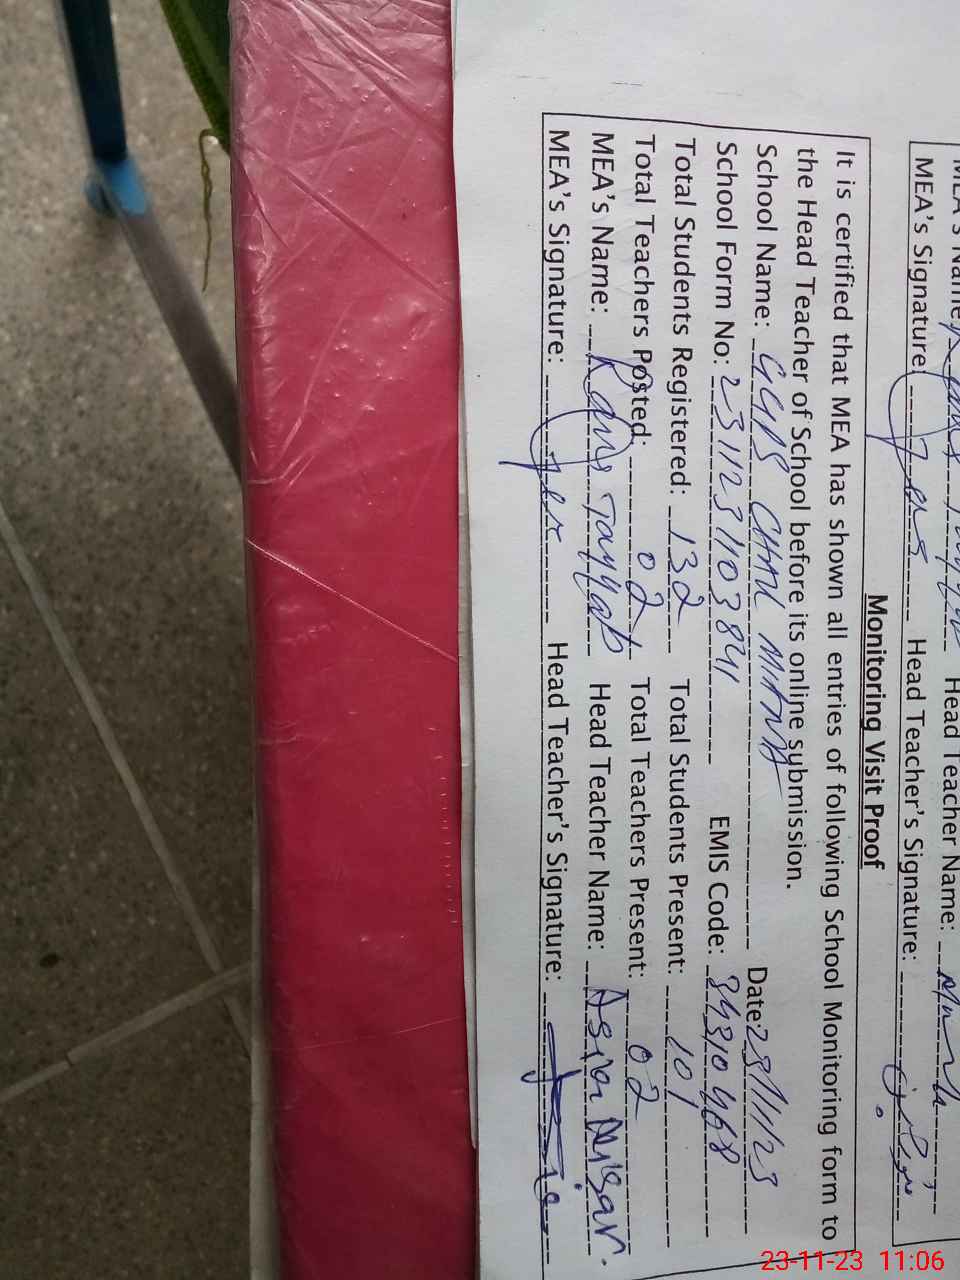 MEA's Name: Head Teacher Name:
MEA's Signature: Head Teacher's Signature:
Monitoring Visit Proof
It is certified that MEA has shown all entries of following School Monitoring form to
the Head Teacher of School before its online submission.
School Name: GGPS CHAK MIANA Date: 23/11/23
School Form No: 2311231103841 EMIS Code: 34310468
Total Students Registered: 132 Total Students Present: 101
Total Teachers Posted: 02 Total Teachers Present: 02
MEA's Name: Rana Tayyab Head Teacher Name: Asma Nisar.
MEA's Signature: Head Teacher's Signature:
23-11-23 11:06